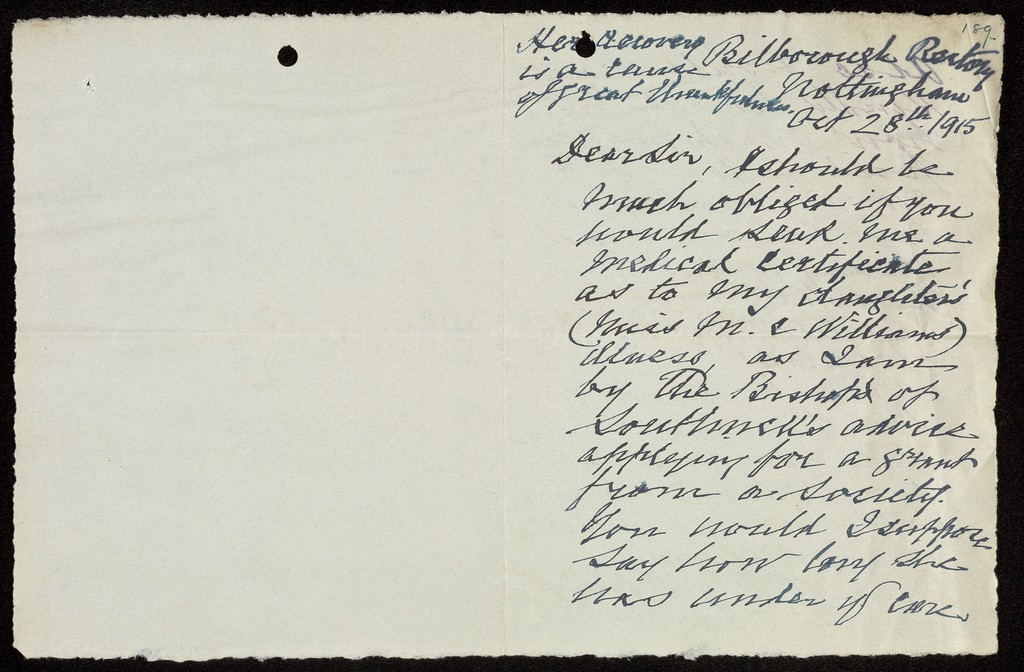 189.
Her recovery
is a cause
of great thankfulness.
Bilborough Rectory
Nottingham
Oct 28th 1915
Dear Sir, I should be
much obliged if you
would send me a
medical certificate
as to my daughter's
(Miss M. E Williams)
illness, as I am
by the Bishop of
Southwell's advice
applying for a grant
from a Society.
You would I suppose
say how long she
was under yr care.